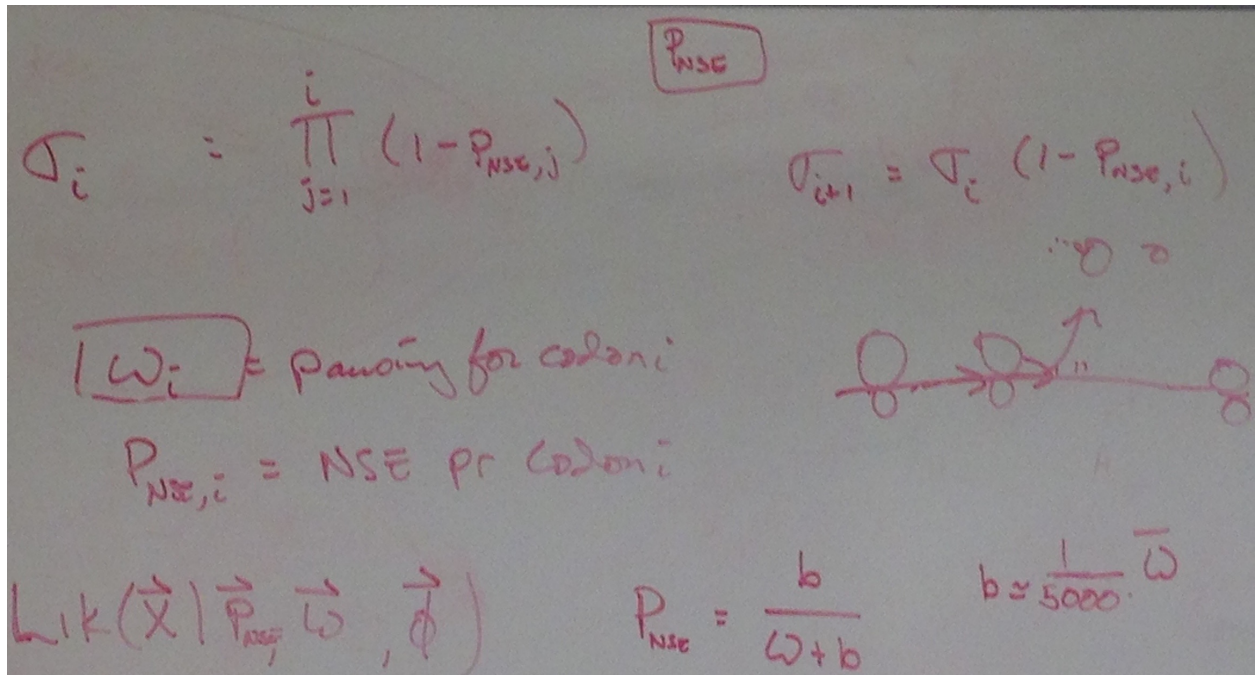 P_NSE
σ_i = ∏_{j=1}^{i} (1 - P_NSE,j)    σ_{i+1} = σ_i (1 - P_NSE,i)
ω_i = pausing for codon i
P_NSE,i = NSE pr codon i
Lik(x⃗ | P⃗_NSE, ω⃗, φ⃗)    P_NSE = b / (ω + b)    b ≈ 1/5000 · ω̄